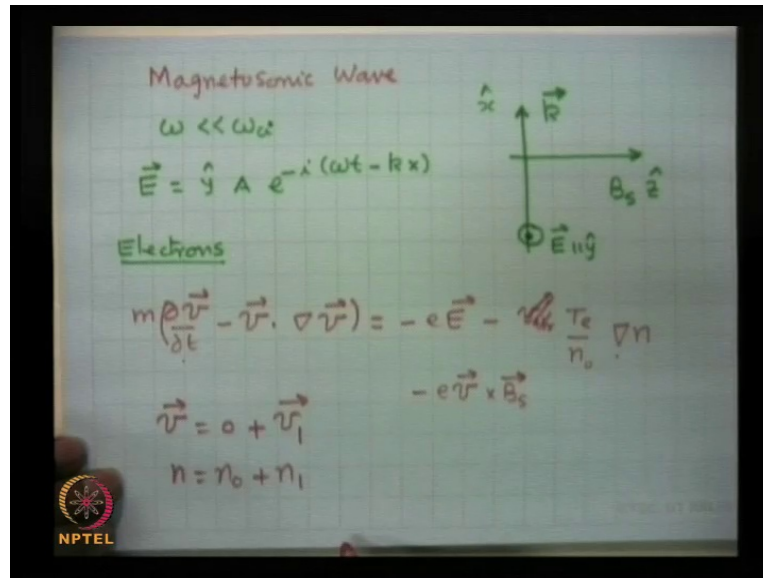 Magnetosonic Wave
ω << ω_ci
E⃗ = ŷ A e^{-i(ωt - kx)}
x̂ k⃗
B_s ẑ
E⃗ ∥ ŷ
Electrons
m(∂v⃗/∂t - v⃗ · ∇v⃗) = -eE⃗ - T_e/n_0 ∇n
- e v⃗ × B⃗_s
v⃗ = 0 + v⃗_1
n = n_0 + n_1
NPTEL